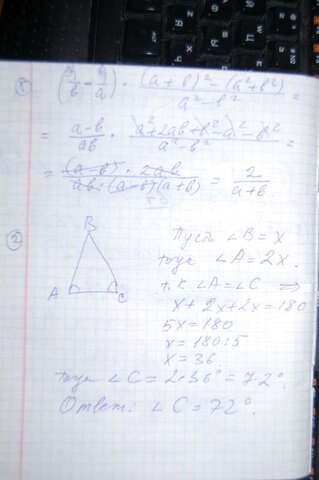 1) (a/b - b/a) · ((a+b)² - (a²+b²))/(a² - b²) =
= (a-b)/ab · (a²+2ab+b²-a²-b²)/(a²-b²) =
= ((a-b)·2ab)/(ab·(a-b)(a+b)) = 2/(a+b)
2)
B
A C
Пусть ∠B = x
тогда ∠A = 2x.
т.к ∠A = ∠C ⇒
x + 2x + 2x = 180
5x = 180
x = 180:5
x = 36
Тогда ∠C = 2·36° = 72°.
Ответ: ∠C = 72°.